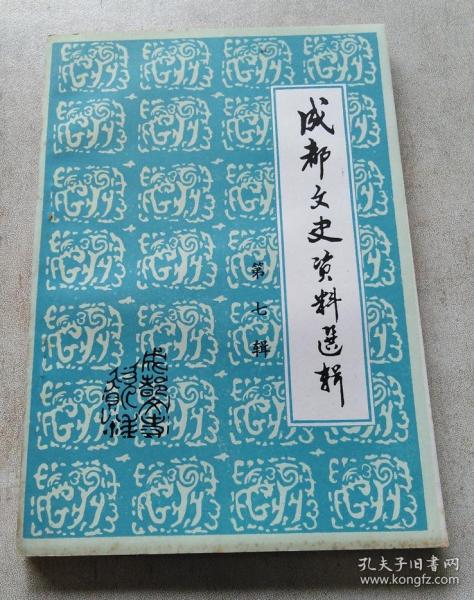 成都文史资料選輯
第七辑
孔夫子旧书网
www.kongfz.com